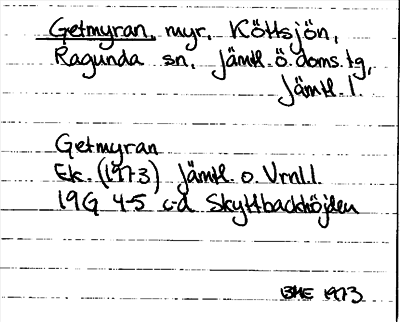 Getmyran, myr, Köttsjön,
Ragunda sn, Jämtl. ö. doms. tg,
Jämtl. l.
Getmyran
Ek. (1973) Jämtl. o. Vrnll.
19G 4-5 c-d Skyttbackhöjden
BME 1973